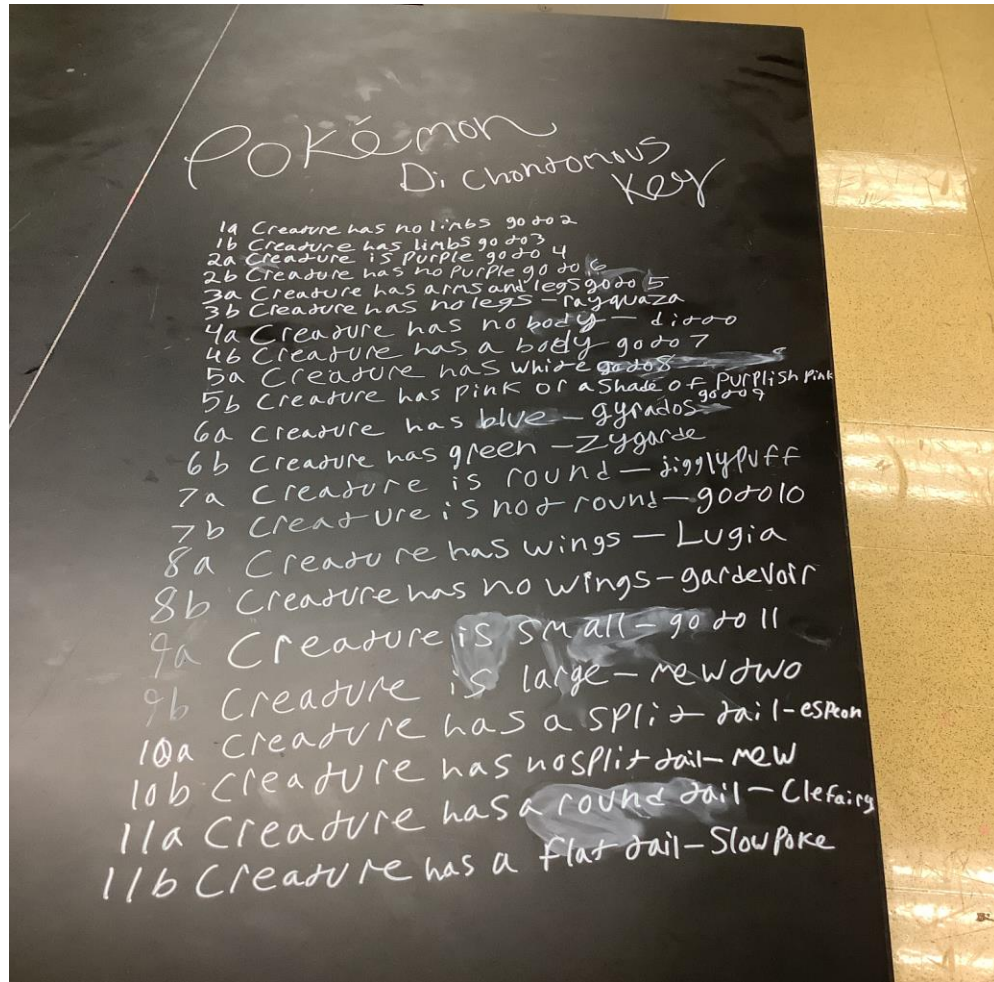 Pokémon
Dichontomous
Key
1a Creature has no limbs go to 2
1b Creature has limbs go to 3
2a Creature is purple go to 4
2b Creature has no purple go to 6
3a Creature has arms and legs go to 5
3b Creature has no legs – rayquaza
4a Creature has no body – ditto
4b Creature has a body – go to 7
5a Creature has white go to 8
5b Creature has pink or a shade of purplish pink
go to 9
6a Creature has blue – gyrados
6b Creature has green – Zygarde
7a Creature is round – jigglypuff
7b Creature is not round – go to 10
8a Creature has wings – Lugia
8b Creature has no wings – gardevoir
9a Creature is small – go to 11
9b Creature is large – mewtwo
10a Creature has a split tail – espeon
10b Creature has no split tail – mew
11a Creature has a round tail – Clefairy
11b Creature has a flat tail – Slowpoke